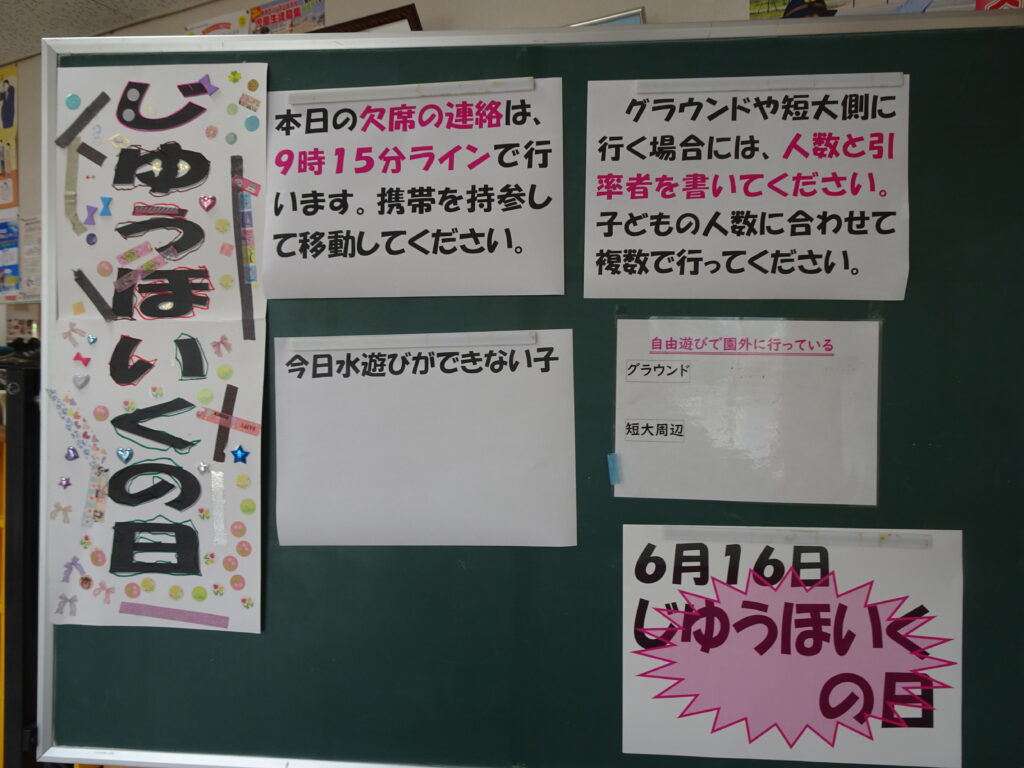 じゆうほいくの日
本日の欠席の連絡は、
9時15分ラインで行
います。携帯を持参し
て移動してください。
グラウンドや短大側に
行く場合には、人数と引
率者を書いてください。
子どもの人数に合わせて
複数で行ってください。
今日水遊びができない子
自由遊びで園外に行っている
グラウンド
短大周辺
6月16日
じゆうほいく
の日